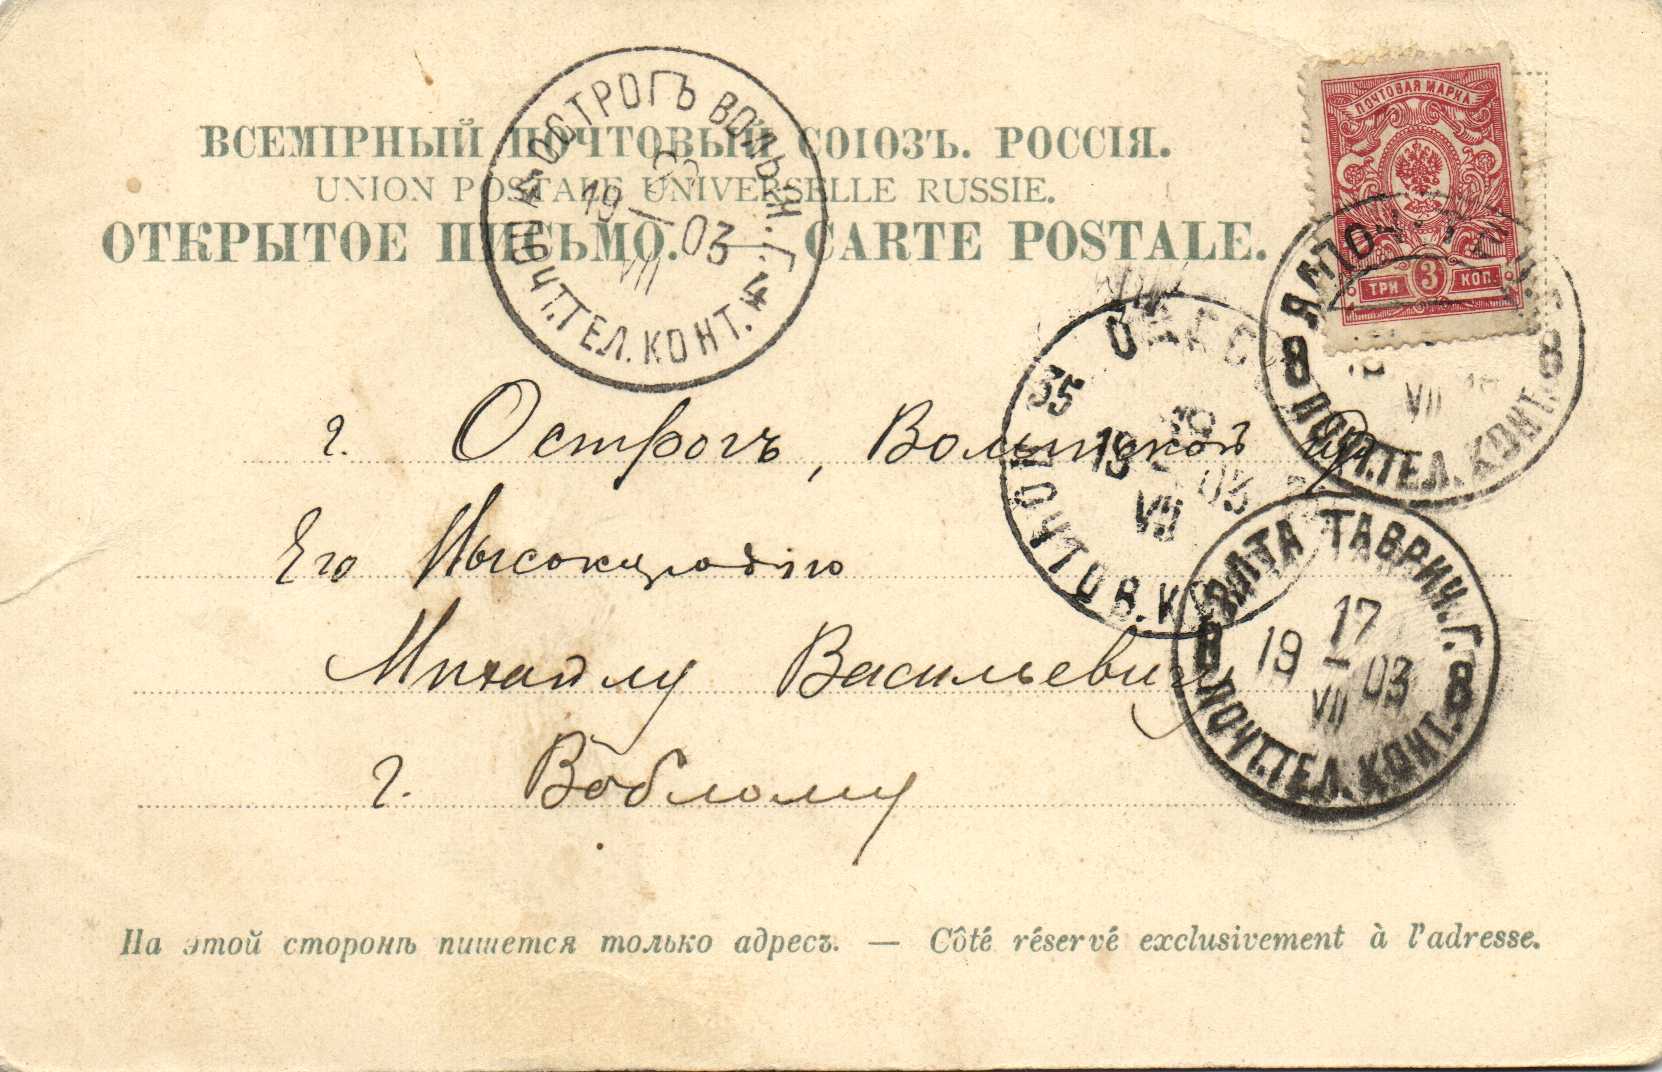 ВСЕМІРНЫЙ ПОЧТОВЫЙ СОЮЗЪ. РОССІЯ.
UNION POSTALE UNIVERSELLE RUSSIE.
ОТКРЫТОЕ ПИСЬМО. — CARTE POSTALE.
ПОЧТОВАЯ МАРКА
ТРИ 3 КОП.
ОСТРОГЪ ВОЛЫН. Г.
19 — 03
VII
4 ПОЧТ.ТЕЛ.КОНТ. 4
55
19 03
VII
ПОЧТОВ.К
8 8
VII
ПОЧТ.ТЕЛ.КОНТ.
ЯЛТА ТАВРИЧ.Г.
17
19 — 03
VII
8 ПОЧТ.ТЕЛ.КОНТ. 8
г. Острогъ, Волынской гу
Его Высокородію
Михаилу Васильевичу
г. Воблому
На этой сторонѣ пишется только адресъ. — Côté réservé exclusivement à l'adresse.